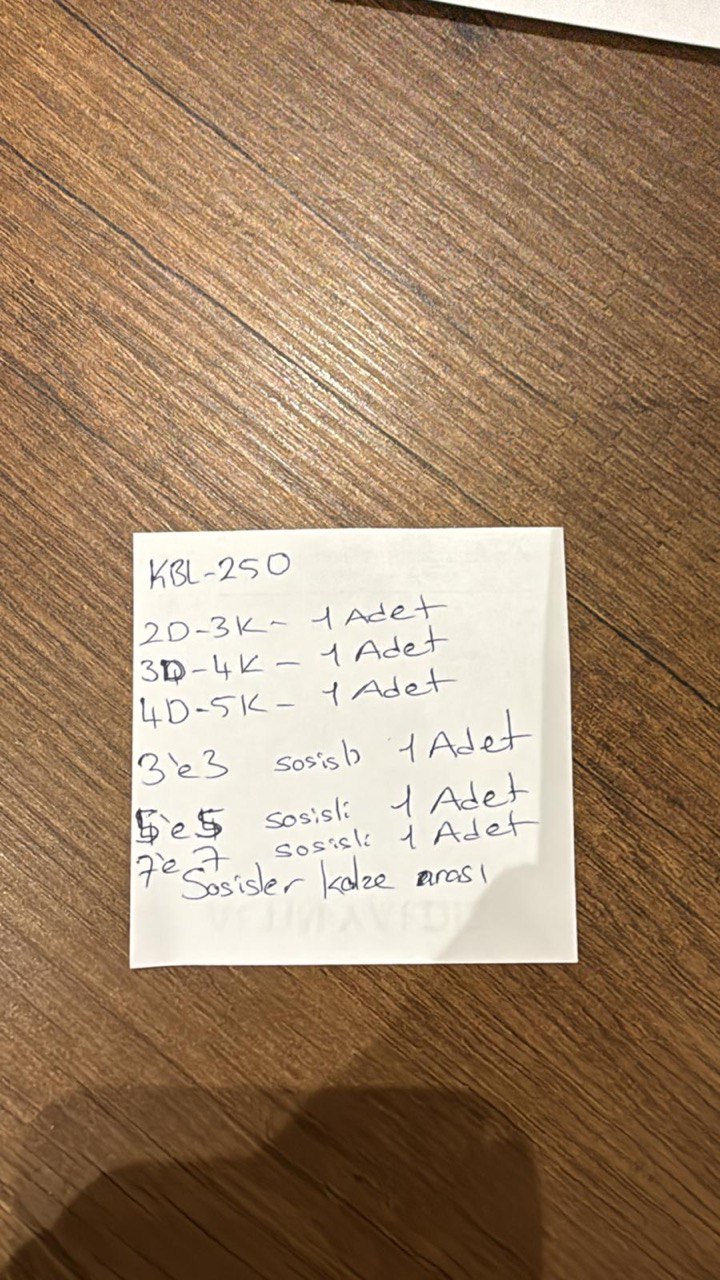 KBL-250
2D-3K- 1 Adet
3D-4K - 1 Adet
4D-5K- 1 Adet
3'e3 sosisli 1 Adet
5'e5 sosisli 1 Adet
7'e 7 sosisli 1 Adet
Sosisler kalze arası